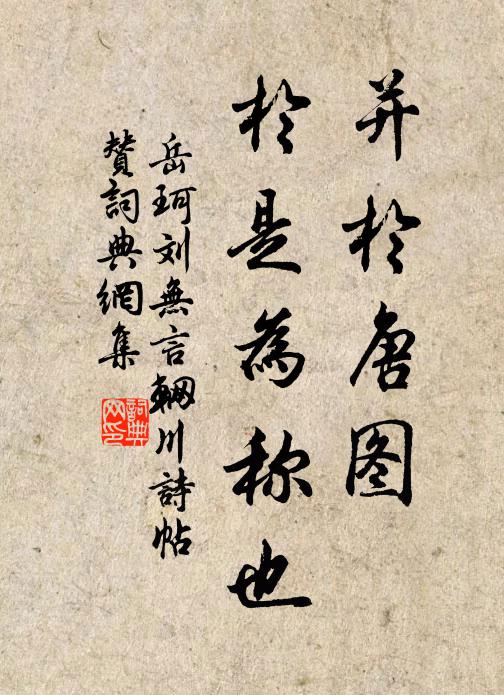 并於唐图
於是為称也
岳珂刘無言輞川詩帖
赞詞典網集
詞典
网印